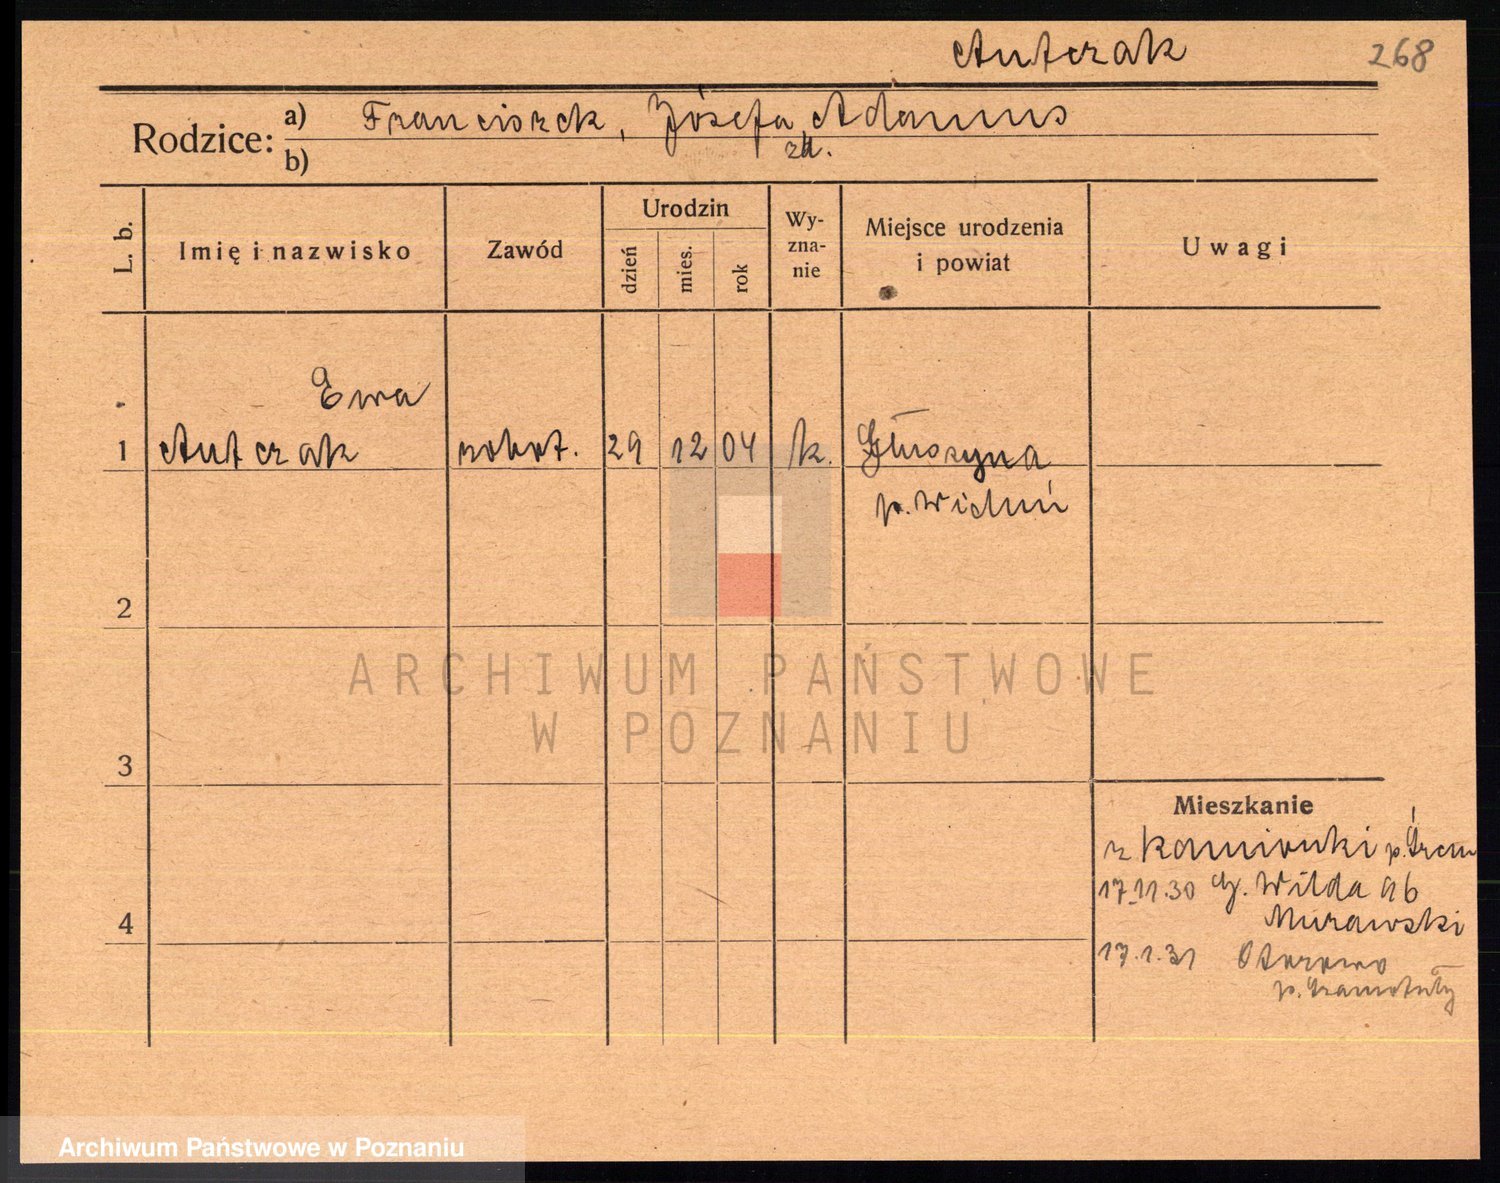 Antczak 268
Rodzice: a) Franciszek, Józefa Adamus
b) zd.
L. b. Imię i nazwisko Zawód Urodzin dzień mies. rok Wy-zna-nie Miejsce urodzenia i powiat Uwagi
Ewa
1 Antczak robot. 29 12 04 k. Głuszyna
p. Wieluń
2
ARCHIWUM PAŃSTWOWE
W POZNANIU
3
Mieszkanie
z Kamionki p. Śrem
17.11.30 G. Wilda 96
4 Murawski
17.1.31 Otorowo
p. Szamotuły
Archiwum Państwowe w Poznaniu